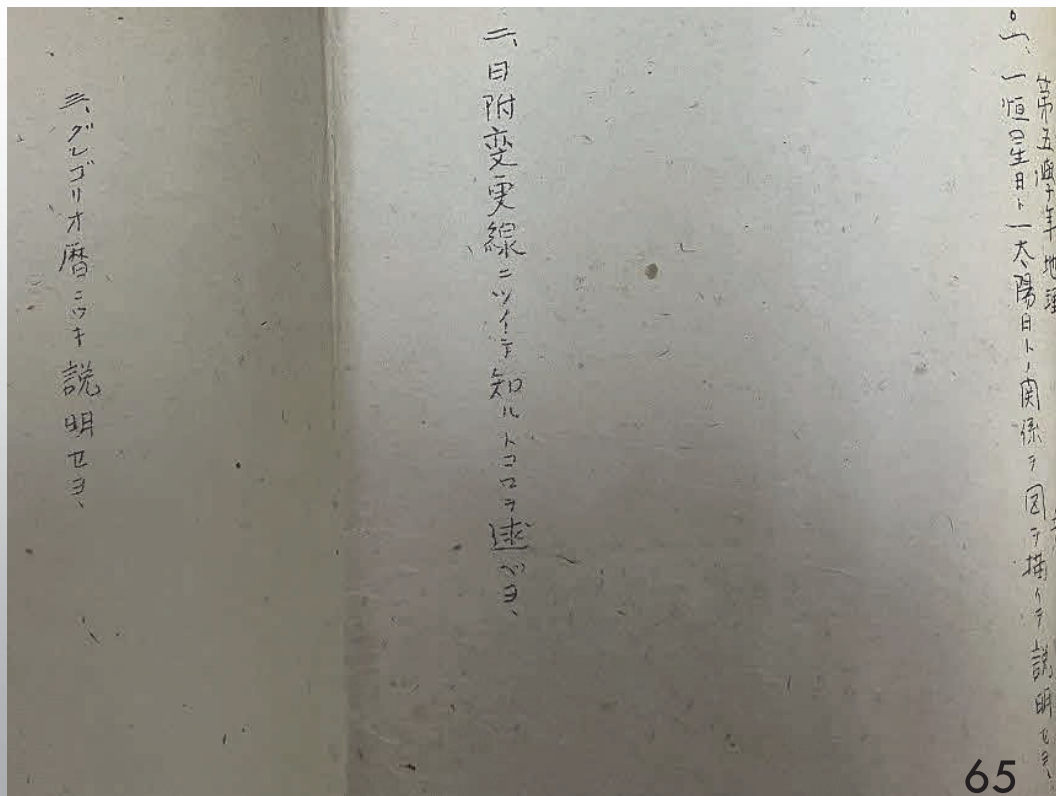 第五學年地理
一、一恒星日ト一太陽日トノ関係ヲ図ヲ描イテ説明セヨ、
二、日附変更線ニツイテ知ルトコロヲ述ベヨ、
三、グレゴリオ暦ニツキ説明セヨ、
65